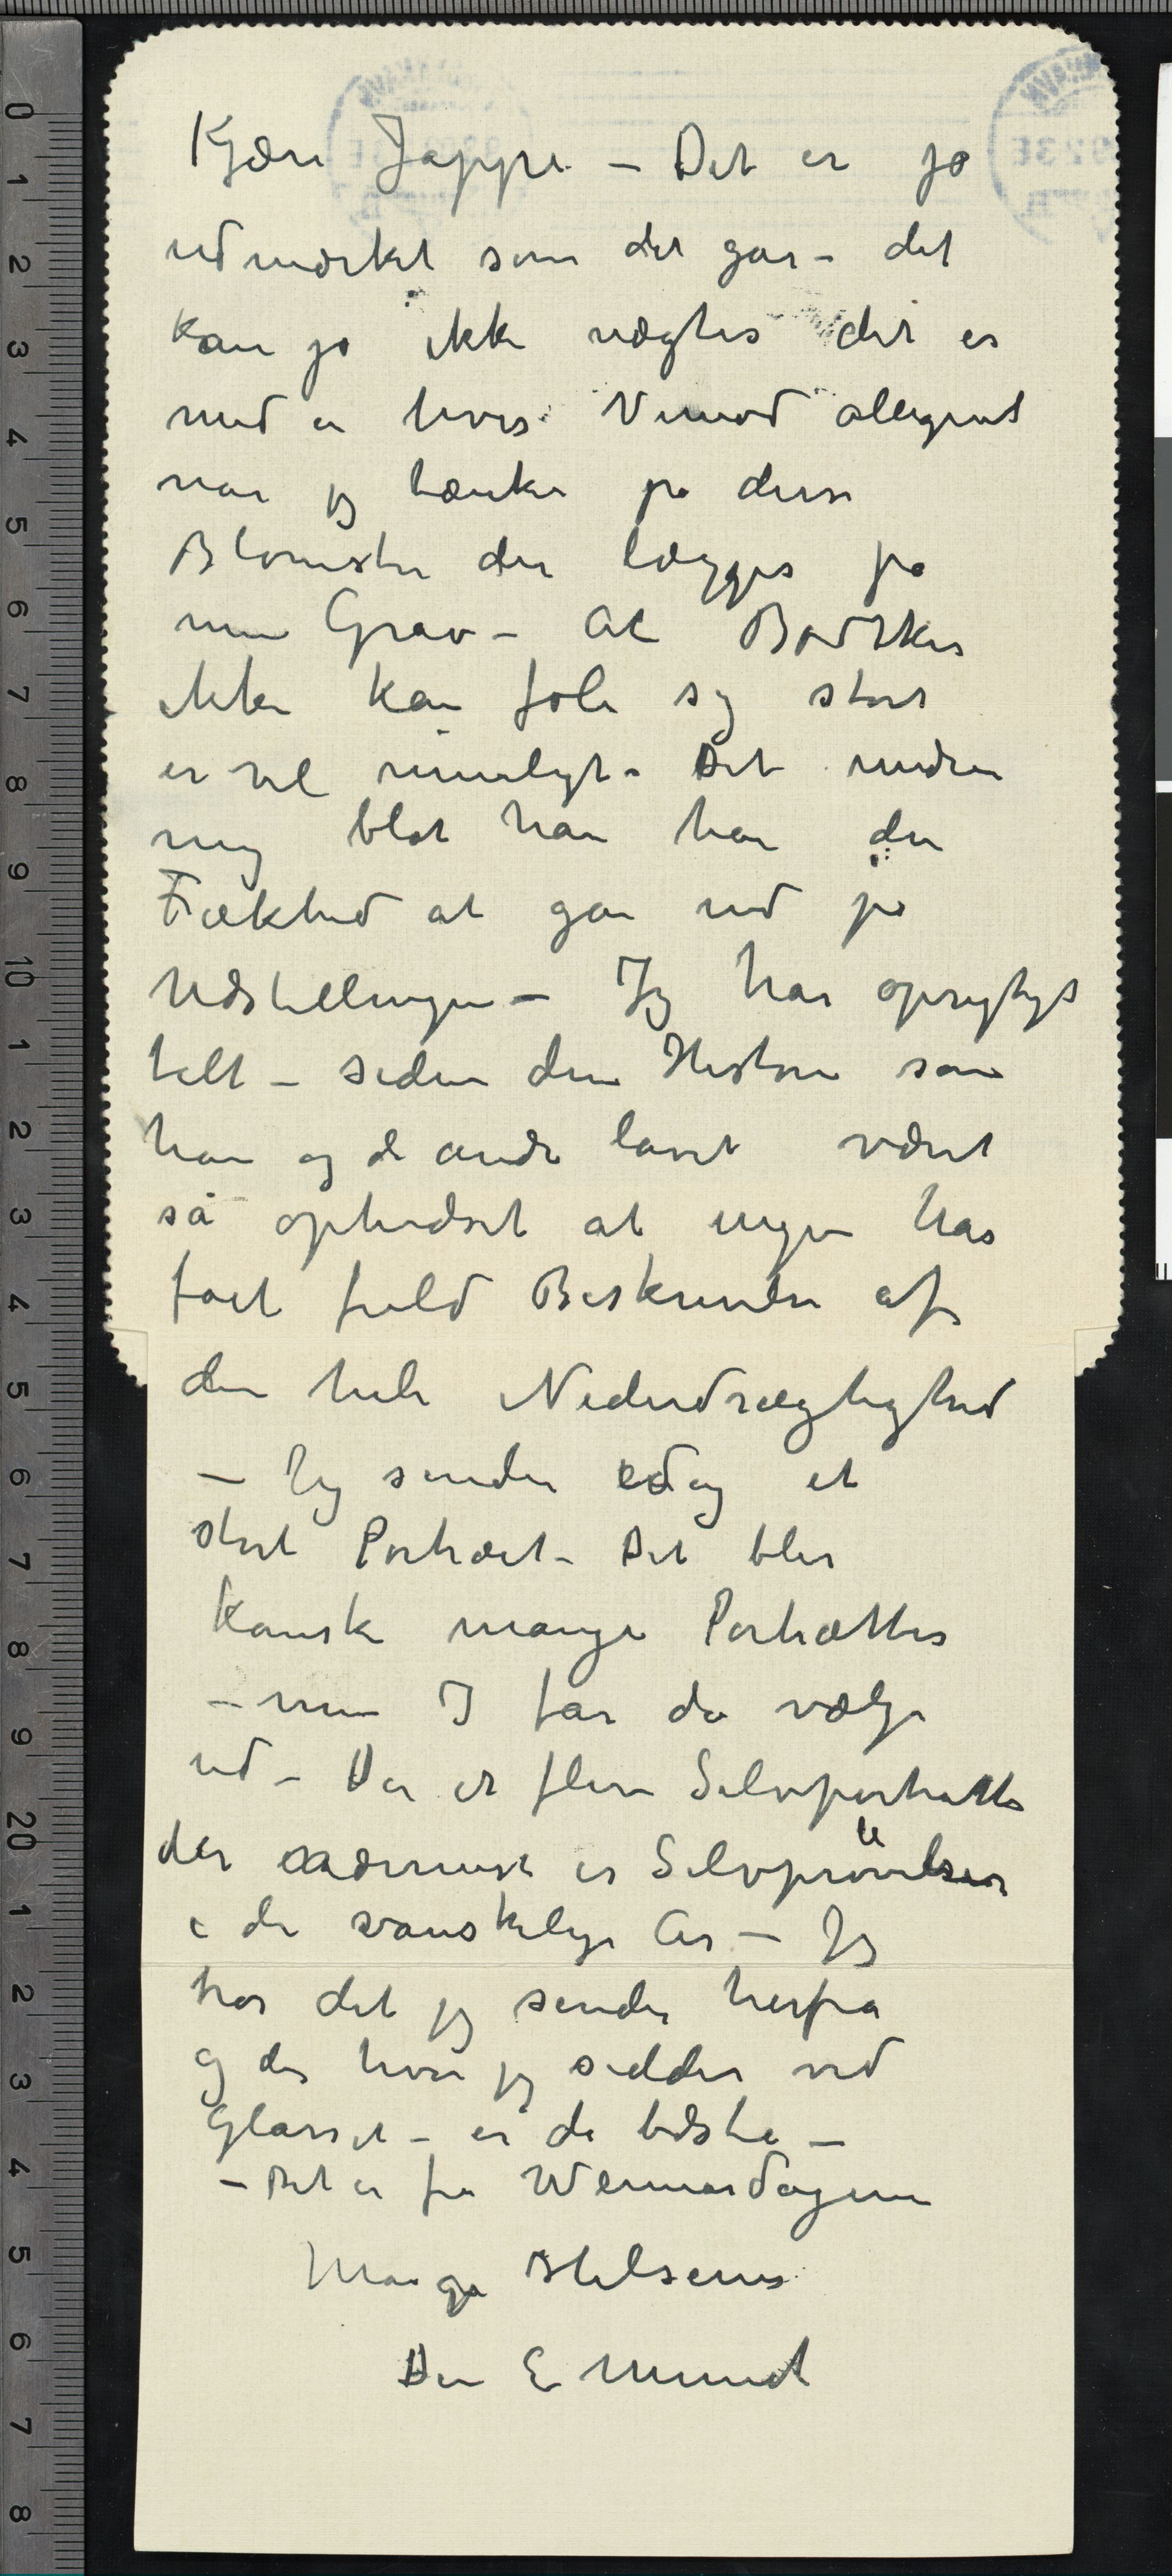 Kjære Jappe – Det er jo
udmærket som det går – det
kan jo ikke nægtes det er
med en hvis Vemod alligevel
når jeg tænker på disse
Blomster der lægges på
min Grav – At Bødtker
ikke kan føle sig stort
er vel rimeligt – Det undrer
mig blot han har den
Frækhed at gåe ind på
Udstillingen – Jeg har oprigtigt
talt – siden den Historie som
han og de andre lavet været
så ophidset at ingen har
fået fuld Beskrivelse af
den hele Nederdrægtighed
– Jeg sender idag et
stort Portræt – Det blir
kanske mange Portrætter
– men I får da vælge
ud – Der er flere Selvportrætter
der nærmest er Selvprøvelser
i de vanskelige År – Jeg
tror det jeg sender herfra
og det hvor jeg sidder ved
Glasset – er de bedste –
– Det er fra Weimardagene
Mange Hilsener
Din E Munch